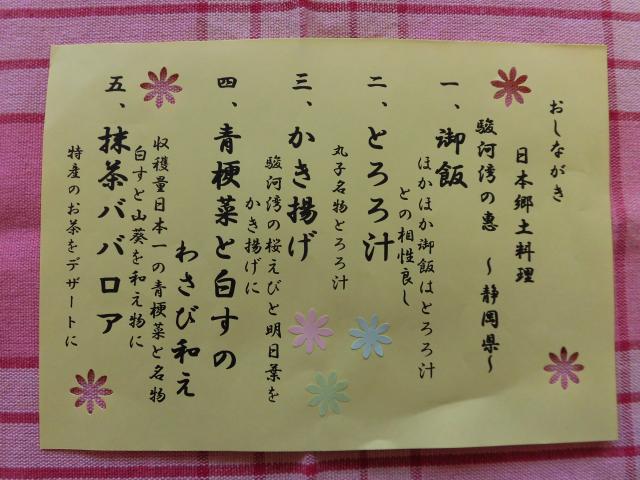 おしながき
日本郷土料理
駿河湾の恵　～静岡県～
一、御飯
ほかほか御飯はとろろ汁
との相性良し
二、とろろ汁
丸子名物とろろ汁
三、かき揚げ
駿河湾の桜えびと明日葉を
かき揚げに
四、青梗菜と白すの
わさび和え
収穫量日本一の青梗菜と名物
白すと山葵を和え物に
五、抹茶ババロア
特産のお茶をデザートに